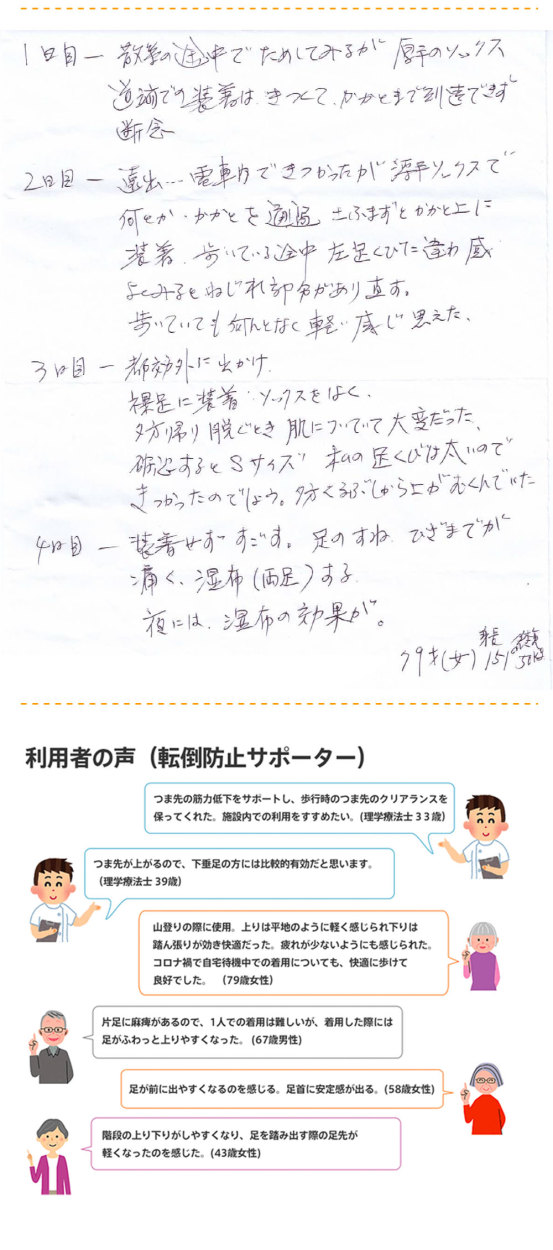 1日目ー 散策の途中でためしてみるが 厚手のソックス
道端での装着は、きつくて、かかとまで到達できず
断念
2日目ー 遠出… 電車内できつかったが 薄手ソックスで
何とか・かかとを通過 土ふまずとかかと上に
装着、歩いている途中 左足くびに違和感
よくみるとねじれ部分があり直す。
歩いていても何んとなく軽い感じ思えた、
3日目ー 都効外に出かけ、
裸足に装着・ソックスをはく、
夕方帰り脱ぐとき肌についていて大変だった、
確認するとSサイズ 私の足くびは太いので
きつかったのでしょう。夕方くるぶしから上がむくんでいた
4日目ー 装着せず すごす。足のすね、ひざまでが
痛く、湿布(両足)する、
夜には、湿布の効果が。
79才(女) 身長151 体重50kg
利用者の声（転倒防止サポーター）
つま先の筋力低下をサポートし、歩行時のつま先のクリアランスを
保ってくれた。施設内での利用をすすめたい。(理学療法士 33歳)
つま先が上がるので、下垂足の方には比較的有効だと思います。
（理学療法士 39歳)
山登りの際に使用。上りは平地のように軽く感じられ下りは
踏ん張りが効き快適だった。疲れが少ないようにも感じられた。
コロナ禍で自宅待機中での着用についても、快適に歩けて
良好でした。 （79歳女性)
片足に麻痺があるので、1人での着用は難しいが、着用した際には
足がふわっと上りやすくなった。(67歳男性)
足が前に出やすくなるのを感じる。足首に安定感が出る。(58歳女性)
階段の上り下りがしやすくなり、足を踏み出す際の足先が
軽くなったのを感じた。(43歳女性)